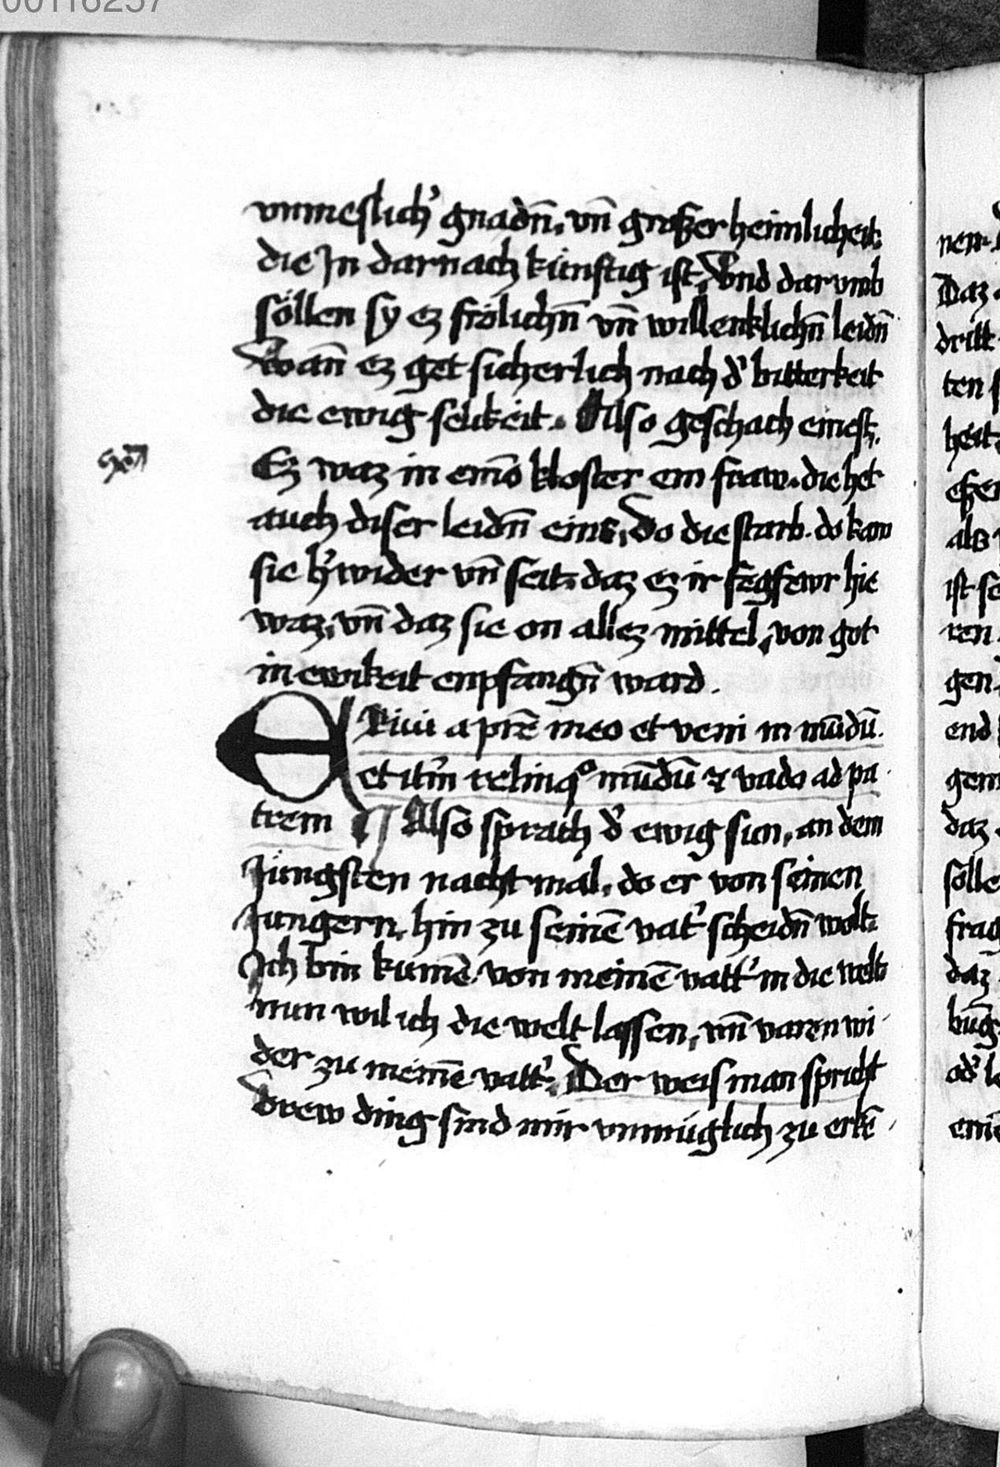 00116257
vnmeslich' gnadn̄. vn̄ grosser heimlicheit
die Jn darnach kúnftig ist. Vnd dar vmb
söllen sy ez frölichn̄ vn̄ willenklichn̄ leidn̄
Wan̄ ez get sicherlich nach d' bitterkeit
die ewig selikeit. Also geschach einest.
Ez waz in eim̄ kloster ein fraw. die het
auch diser leidn̄ eins. Do die starb. do kam
sie h'wider vn̄ seit. daz ez ir fegfewr hie
waz. vn̄ daz sie on allez mittel. von got
in ewikeit enpfangn̄ ward.
Exiui a pr̄e meo et veni in mūdū.
et it'm relinqᵒ mūdū ⁊ vado ad pa
trem ¶ Also sprach d' ewig sun. an dem
Jüngsten nachtmal. do er von seinen
Jungern. hin zu seinē vat' scheidn̄ wolt
Jch bin kumē. von meinē vatt' in die welt
nun wil ich die welt lassen. vn̄ varen wi
der zu meinē vatt'. Der weis man spricht
Drew ding sind mir vnmüglich zu erkē